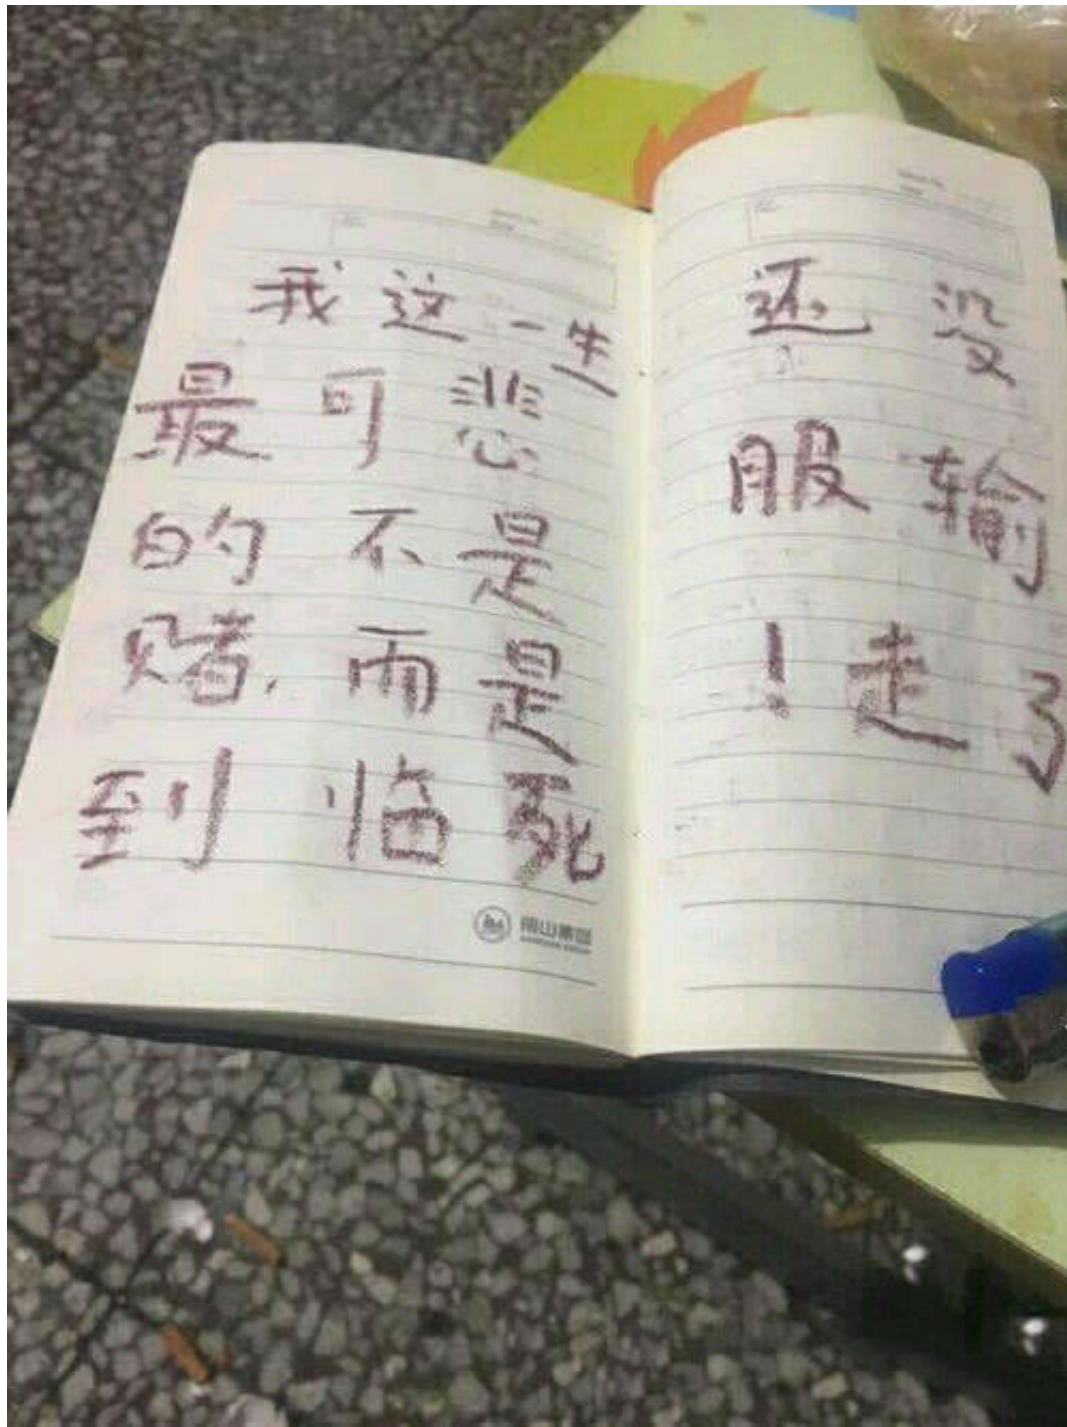 我这一生
最可悲
的不是
赌，而是
到临死
还没
服输
！走了